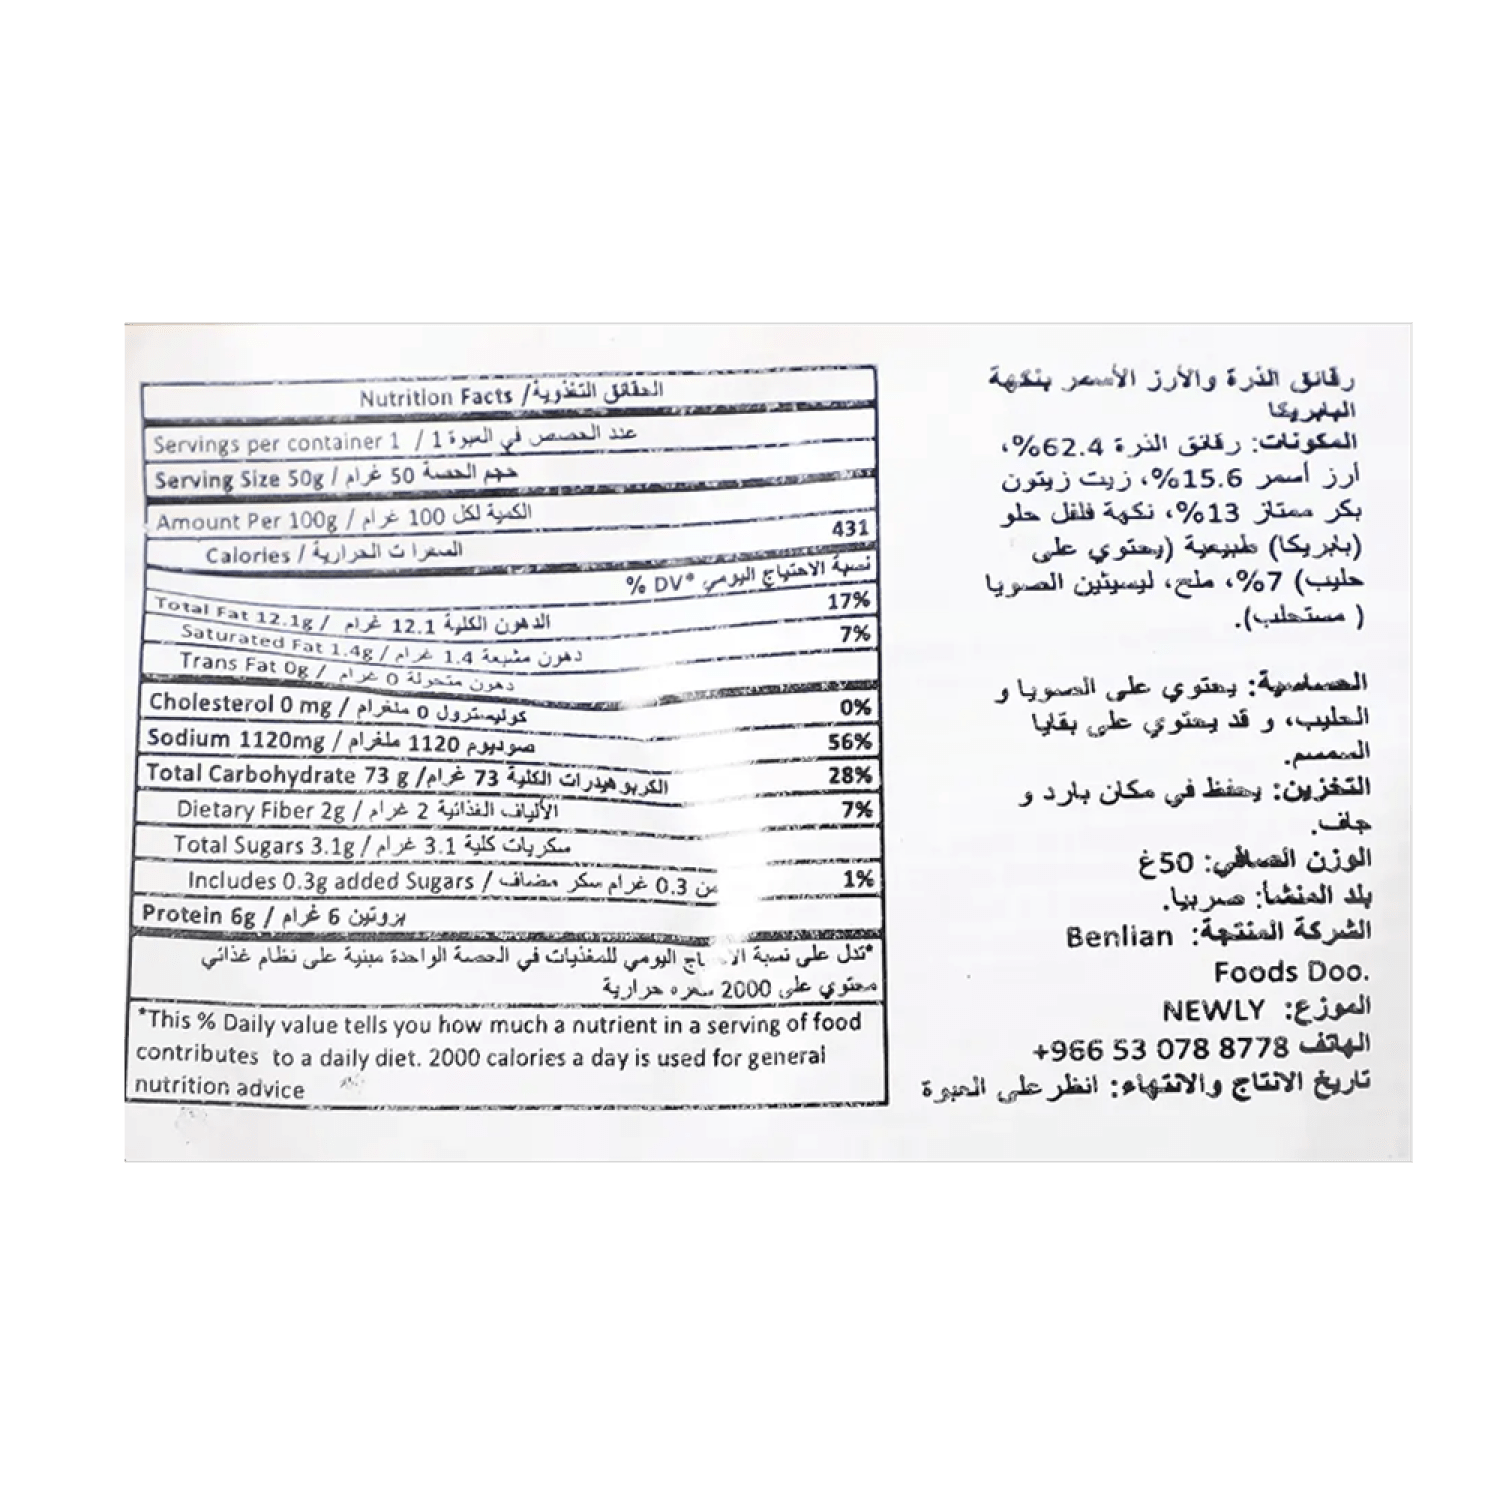 Nutrition Facts / الحقائق التغذوية
Servings per container 1 / عدد الحصص في العبوة 1
Serving Size 50g / حجم الحصة 50 غرام
Amount Per 100g / الكمية لكل 100 غرام
Calories / السعرات الحرارية 431
% DV* نسبة الاحتياج اليومي
Total Fat 12.1g / الدهون الكلية 12.1 غرام 17%
Saturated Fat 1.4g / دهون مشبعة 1.4 غرام 7%
Trans Fat 0g / دهون متحولة 0 غرام
Cholesterol 0 mg / كوليسترول 0 ملغرام 0%
Sodium 1120mg / صوديوم 1120 ملغرام 56%
Total Carbohydrate 73 g / الكربوهيدرات الكلية 73 غرام 28%
Dietary Fiber 2g / الألياف الغذائية 2 غرام 7%
Total Sugars 3.1g / سكريات كلية 3.1 غرام
Includes 0.3g added Sugars / من 0.3 غرام سكر مضاف 1%
Protein 6g / بروتين 6 غرام
*تدل على نسبة اليومي للمغذيات في الحصة الواحدة مبنية على نظام غذائي
محتوي على 2000 سعره حرارية
*This % Daily value tells you how much a nutrient in a serving of food
contributes to a daily diet. 2000 calories a day is used for general
nutrition advice
رقائق الذرة والأرز الأسمر بنكهة
البابريكا
المكونات: رقائق الذرة 62.4%،
أرز أسمر 15.6%، زيت زيتون
بكر ممتاز 13%، نكهة فلفل حلو
(بابريكا) طبيعية (يحتوي على
حليب) 7%، ملح، ليسيثين الصويا
( مستحلب).
الحساسية: يحتوي على الصويا و
الحليب، و قد يحتوي على بقايا
السمسم.
التخزين: يحفظ في مكان بارد و
جاف.
الوزن الصافي: 50غ
بلد المنشأ: صربيا.
الشركة المنتجة: Benlian
Foods Doo.
الموزع: NEWLY
الهاتف +966 53 078 8778
تاريخ الانتاج والانتهاء: انظر على العبوة